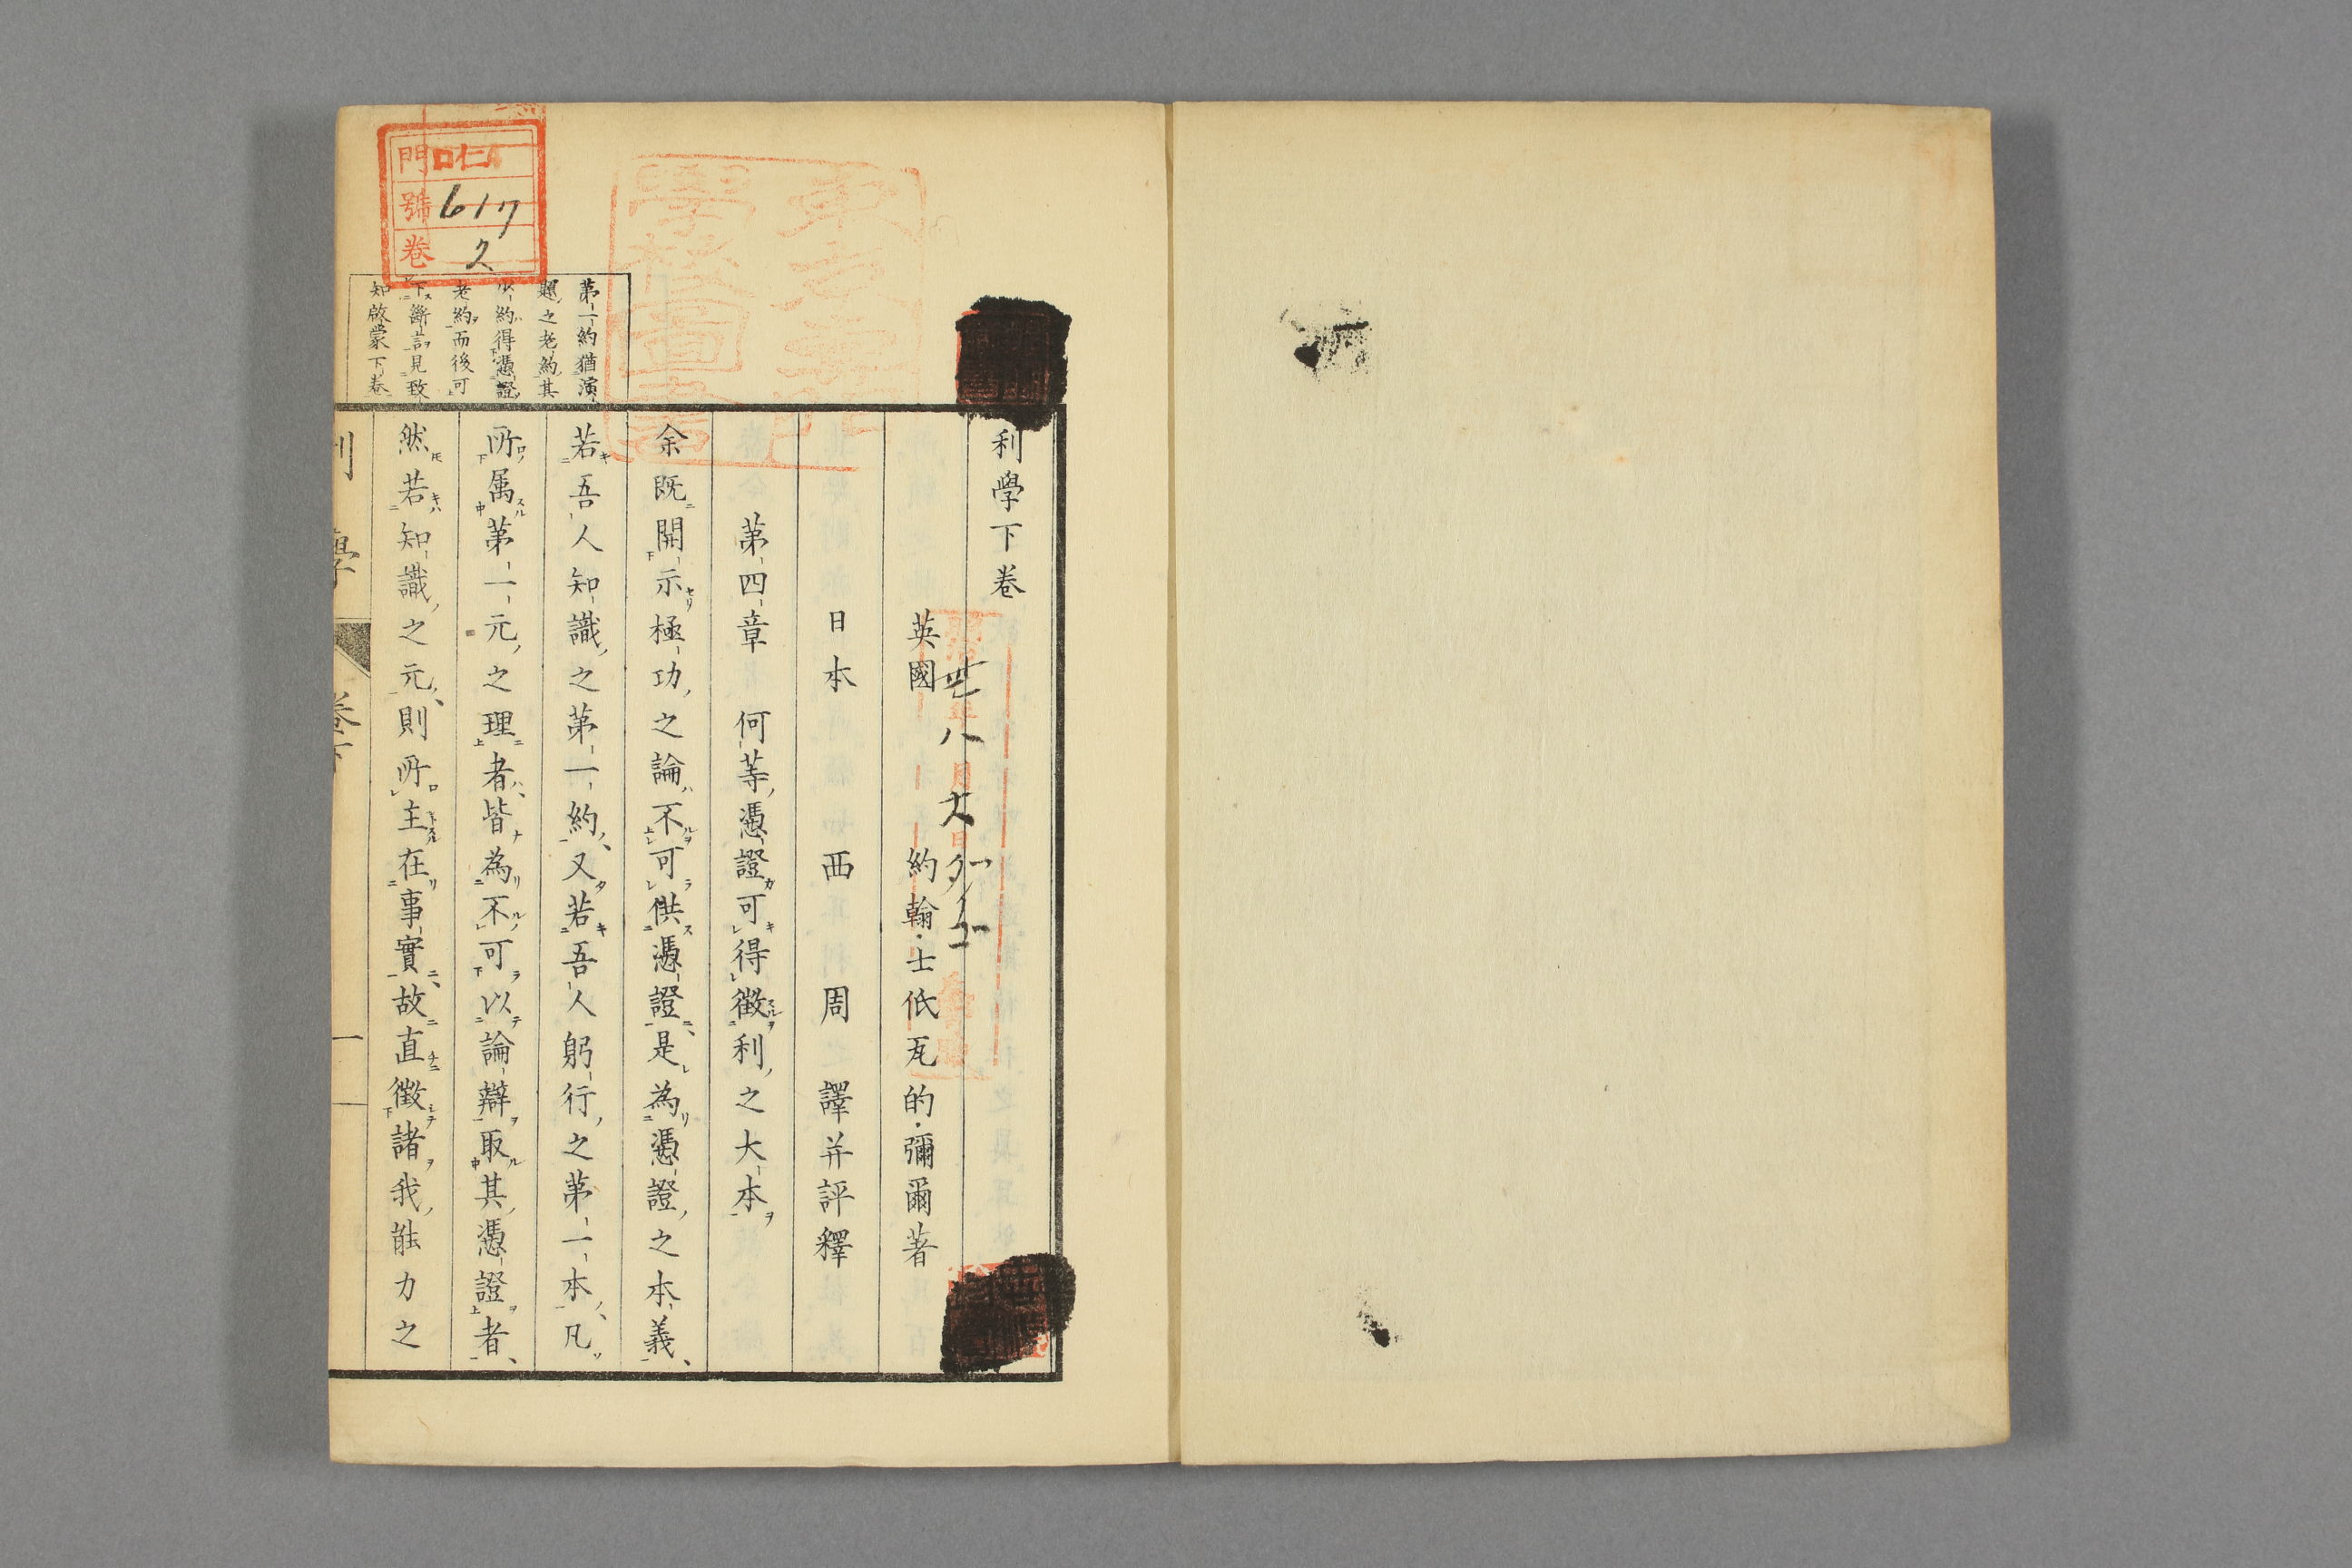 利學下卷
英國 約翰·士低瓦的·彌爾著
日本 西 周 譯并評釋
第四章 何等憑證可得徵利之大本
余既開示極功之論不可供憑證是為憑證之本義
若吾人知識之第一約又若吾人躬行之第一本凡
所屬第一元之理者皆為不可以論辯取其憑證者
然若知識之元則所主在事實故直徵諸我能力之
第一約猶演
題之老約其
少約得憑證
老約而後可
下斷言見致
知啟蒙下卷
門 口仁
號 617
卷 2
利學 卷下 一